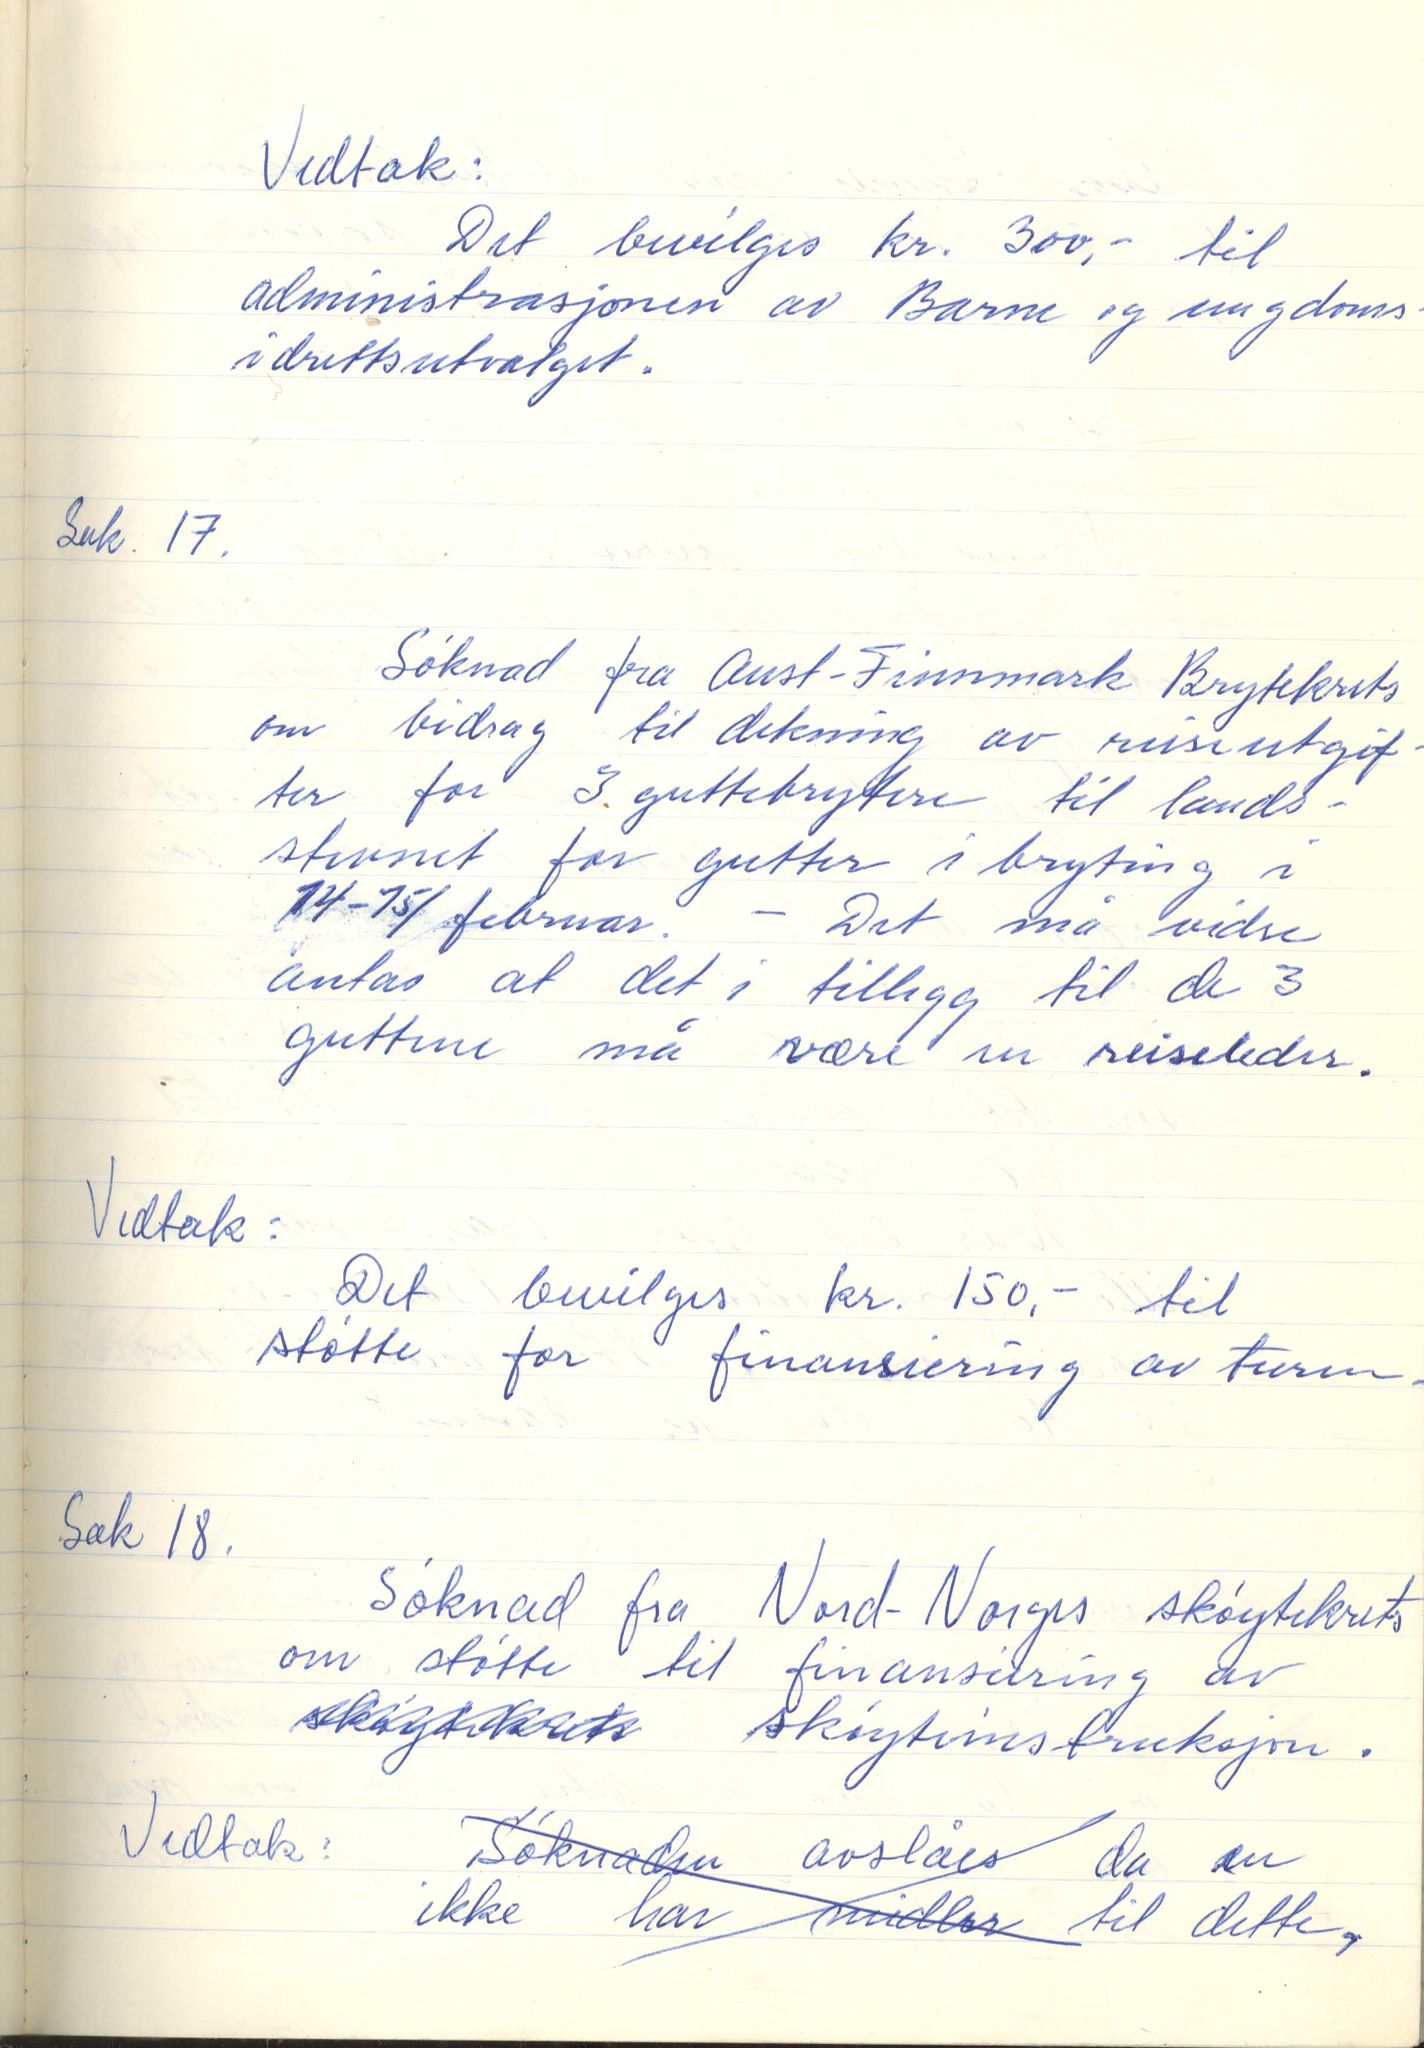 Vedtak:
Det bevilges kr. 300,- til
administrasjonen av Barne og ungdoms-
idrettsutvalget.
Sak. 17.
Søknad fra Aust-Finnmark Brytekrets
om bidrag til dekning av reiseutgif-
ter for 3 guttebrytere til lands-
stevnet for gutter i bryting i
14-15/ februar. - Det må vidre
antas at det i tillegg til de 3
guttene må være en reiseleder.
Vedtak:
Det bevilges kr. 150,- til
støtte for finansiering av turen.
Sak 18.
Søknad fra Nord-Norges skøytekrets
om støtte til finansiering av
skøytekrets skøyteinstruksjon.
Vedtak: Søknaden avslåes da en
ikke har midler til dette.